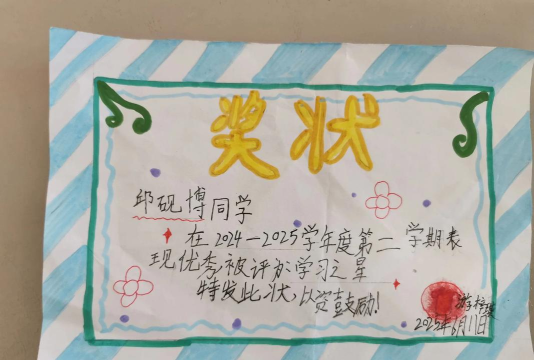 奖状
邱砚博同学
在2024—2025学年度第二学期表
现优秀,被评为学习之星
特发此状,以资鼓励!
2025年6月11日